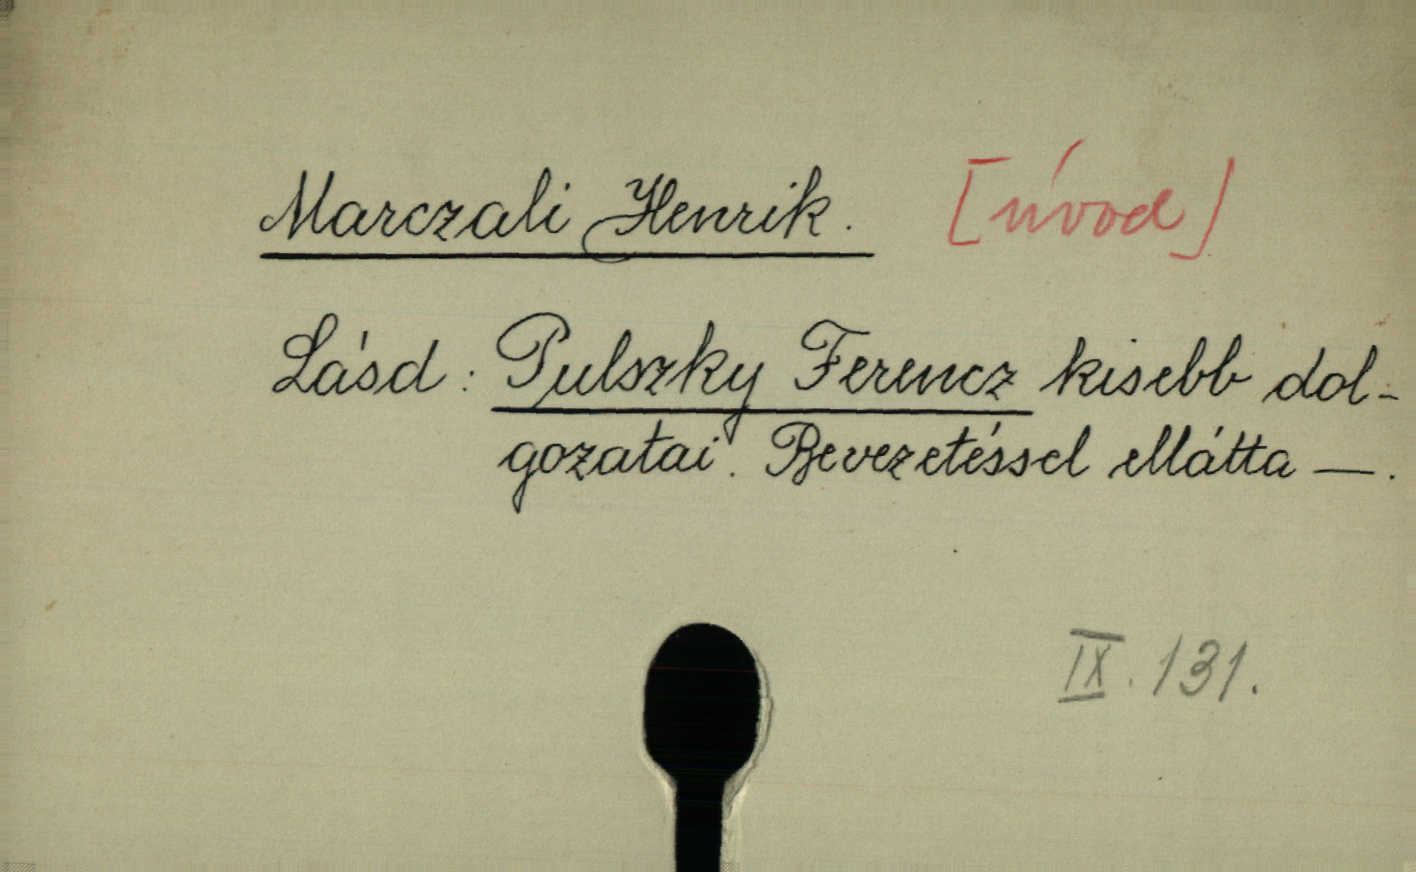 Marczali Henrik. [úvod]
Lásd: Pulszky Ferencz kisebb dol-
gozatai. Bevezetéssel ellátta —.
IX. 131.